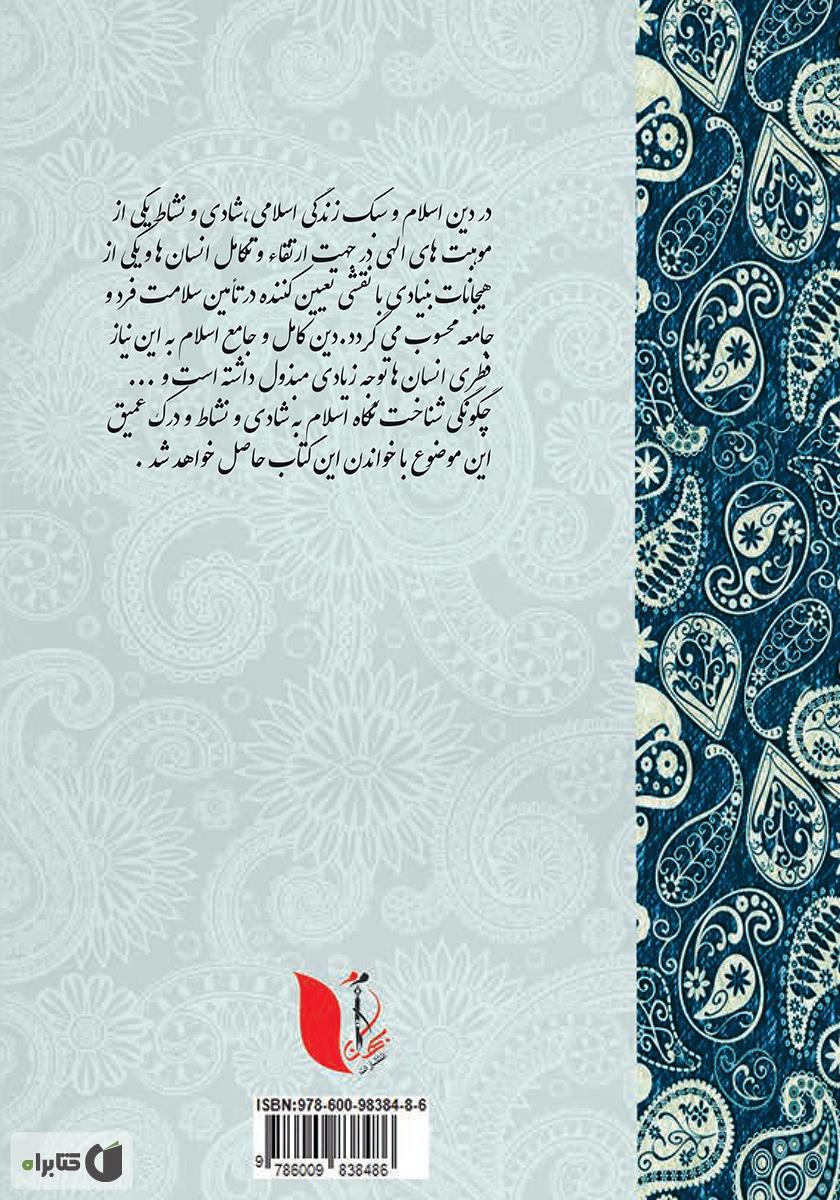 در دین اسلام و سبک زندگی اسلامی،شادی و نشاط یکی از
موهبت های الهی در جهت ارتقاء و تکامل انسان ها و یکی از
هیجانات بنیادی با نقشی تعیین کننده در تأمین سلامت فرد و
جامعه محسوب می گردد.دین کامل و جامع اسلام به این نیاز
فطری انسان ها توجه زیادی مبذول داشته است و ...
چگونگی شناخت نگاه اسلام به شادی و نشاط و درک عمیق
این موضوع با خواندن این کتاب حاصل خواهد شد .
انتشارات
ISBN:978-600-98384-8-6
9 786009 838486
کتابراه